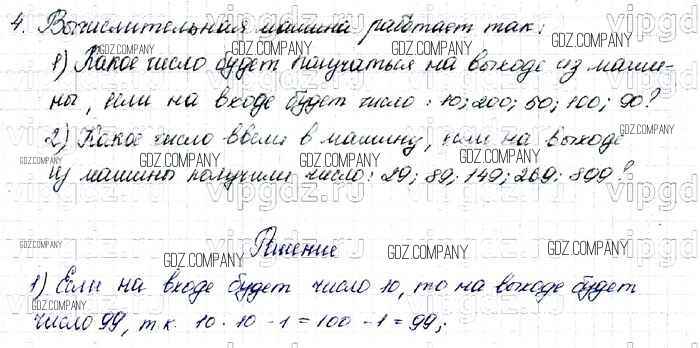 4. Вычислительная машина работает так:
1) Какое число будет получаться на выходе из маши-
ны, если на входе будет число: 10; 200; 50; 100; 90?
2) Какое число ввели в машину, если на выходе
из машины получили число: 29; 89; 149; 269; 899?
Решение
1) Если на входе будет число 10, то на выходе будет
число 99, т.к. 10 · 10 - 1 = 100 - 1 = 99;